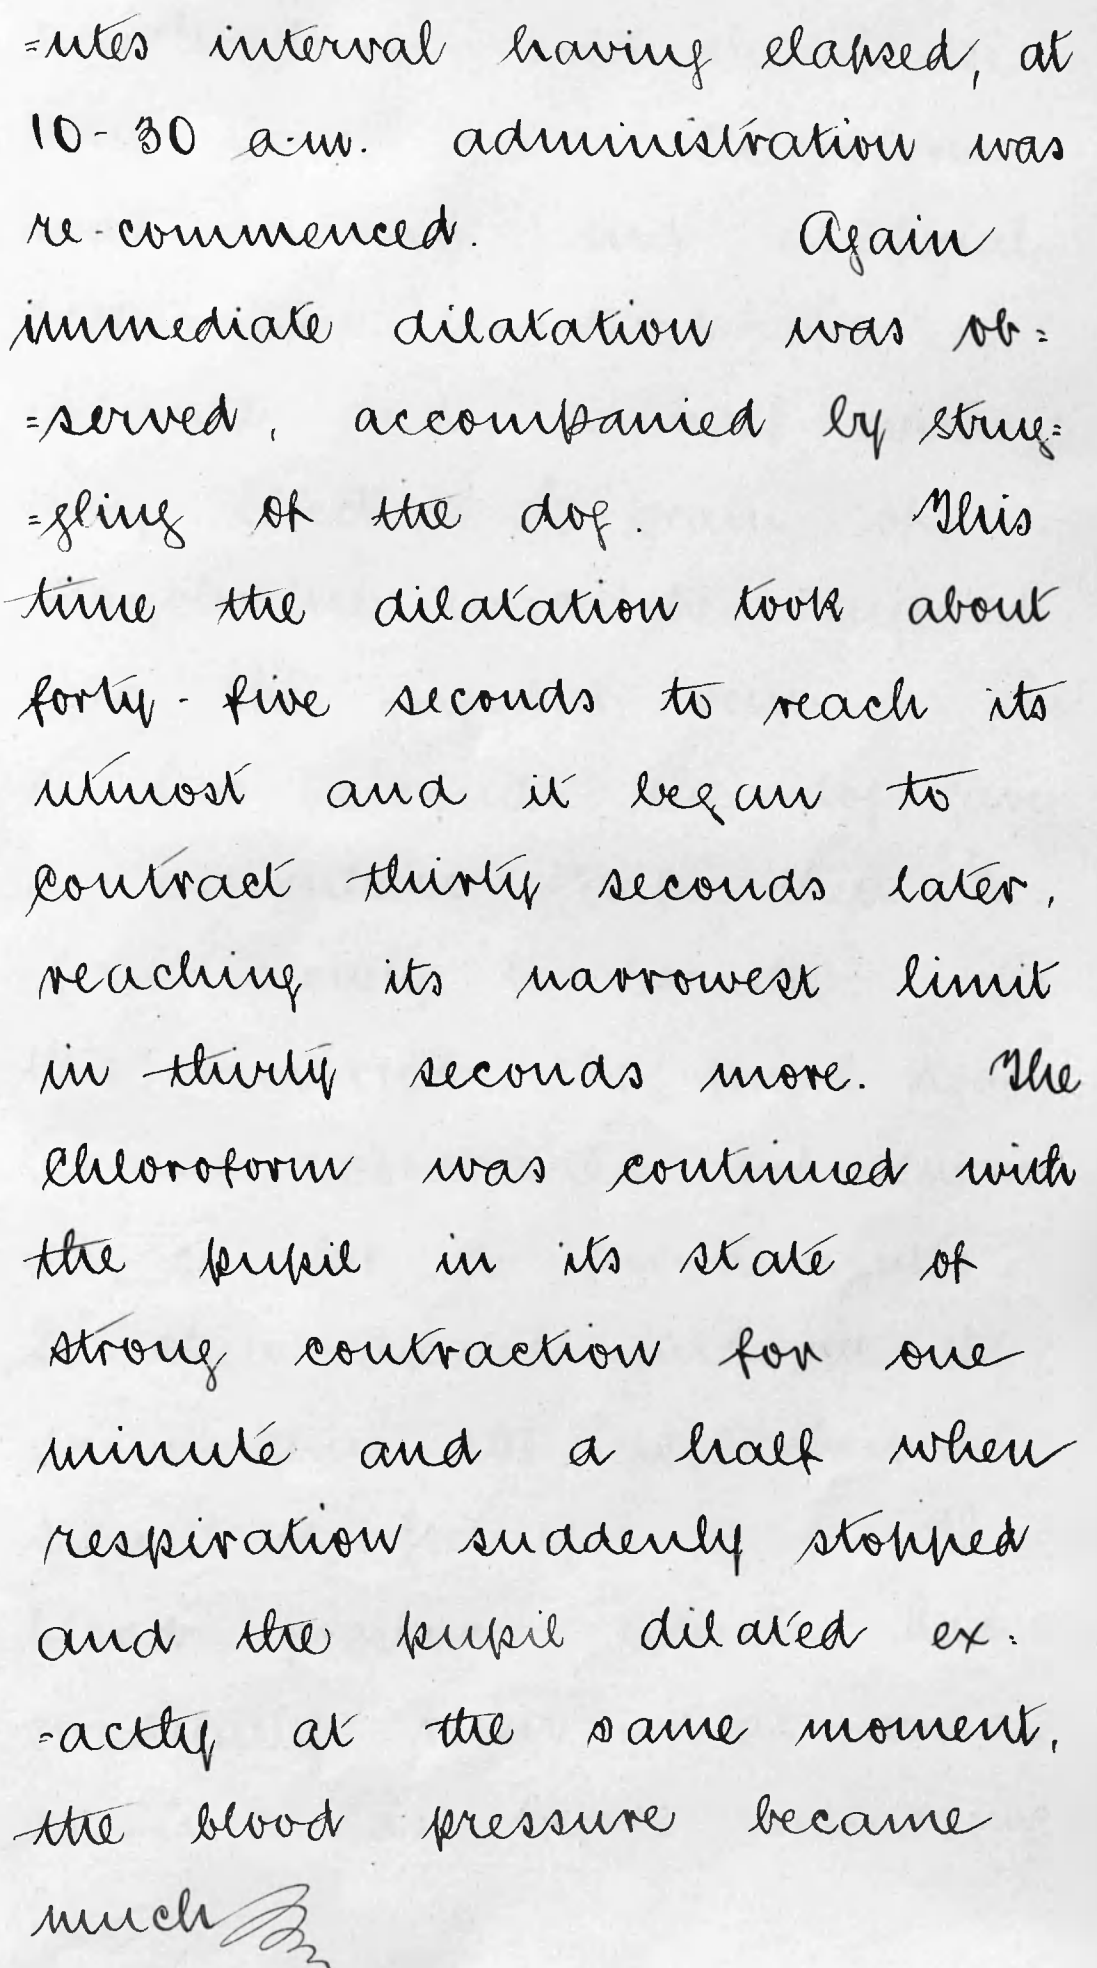 =utes interval having elapsed, at
10-30 a.m. administration was
re-commenced. Again
immediate dilatation was ob=
=served, accompanied by strug=
=gling of the dog. This
time the dilatation took about
forty-five seconds to reach its
utmost and it began to
contract thirty seconds later,
reaching its narrowest limit
in thirty seconds more. The
Chloroform was continued with
the pupil in its state of
strong contraction for one
minute and a half when
respiration suddenly stopped
and the pupil dilated ex=
=actly at the same moment,
the blood pressure became
much